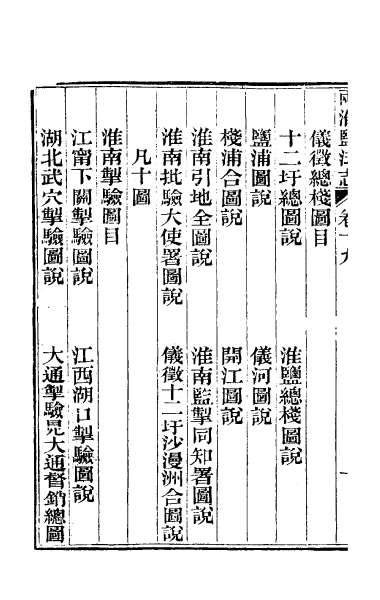 兩淮鹽法志 卷十九
儀徵總棧圖目
十二圩總圖說 淮鹽總棧圖說
鹽浦圖說 儀河圖說
棧浦合圖說 開江圖說
淮南引地全圖說 淮南監掣同知署圖說
淮南批驗大使署圖說 儀徵十二圩沙漫洲合圖說
凡十圖
淮南掣驗圖目
江甯下關掣驗圖說 江西湖口掣驗圖說
湖北武穴掣驗圖說 大通掣驗見大通督銷總圖